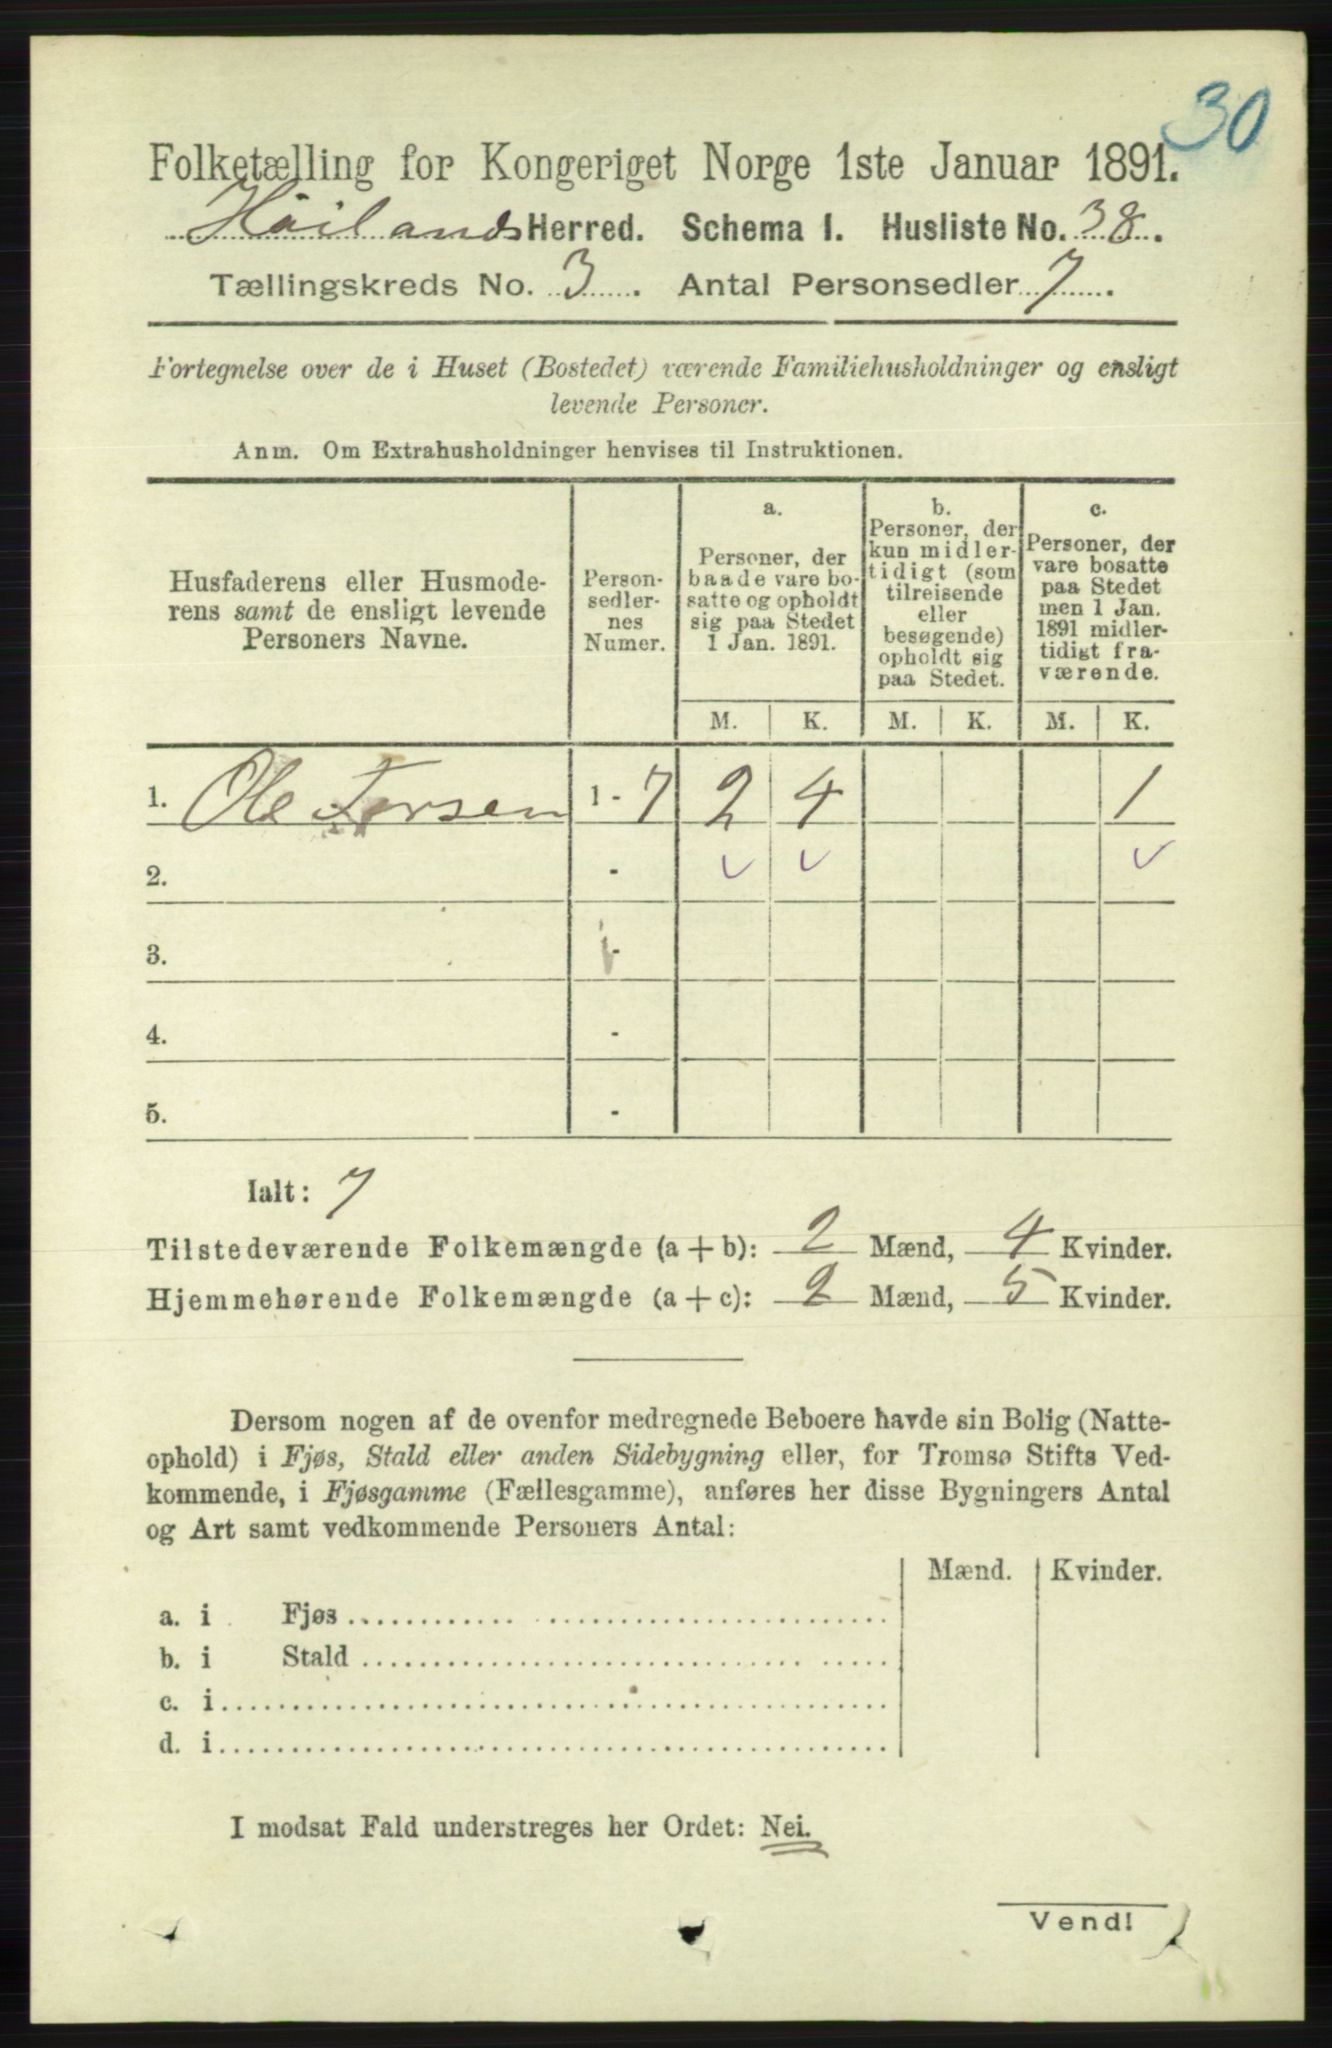 30
Folketælling for Kongeriget Norge 1ste Januar 1891.
Høilands Herred. Schema I. Husliste No. 38.
Tællingskreds No. 3. Antal Personsedler 7.
Fortegnelse over de i Huset (Bostedet) værende Familiehusholdninger og ensligt
levende Personer.
Anm. Om Extrahusholdninger henvises til Instruktionen.
Husfaderens eller Husmode-
rens samt de ensligt levende
Personers Navne.
Person-
sedler-
nes
Numer.
a.
Personer, der
baade vare bo-
satte og opholdt
sig paa Stedet
1 Jan. 1891.
b.
Personer, der
kun midler-
tidigt (som
tilreisende
eller
besøgende)
opholdt sig
paa Stedet.
c.
Personer, der
vare bosatte
paa Stedet
men 1 Jan.
1891 midler-
tidigt fra-
værende.
M. K. M. K. M. K.
1. Ole 1 - 7 2 4 1
2. -
3. -
4. -
5. -
Ialt: 7
Tilstedeværende Folkemængde (a + b): 2 Mænd, 4 Kvinder.
Hjemmehørende Folkemængde (a + c): 2 Mænd, 5 Kvinder.
Dersom nogen af de ovenfor medregnede Beboere havde sin Bolig (Natte-
ophold) i Fjøs, Stald eller anden Sidebygning eller, for Tromsø Stifts Ved-
kommende, i Fjøsgamme (Fællesgamme), anføres her disse Bygningers Antal
og Art samt vedkommende Personers Antal:
Mænd. Kvinder.
a. i Fjøs
b. i Stald
c. i
d. i
I modsat Fald understreges her Ordet: Nei.
Vend!